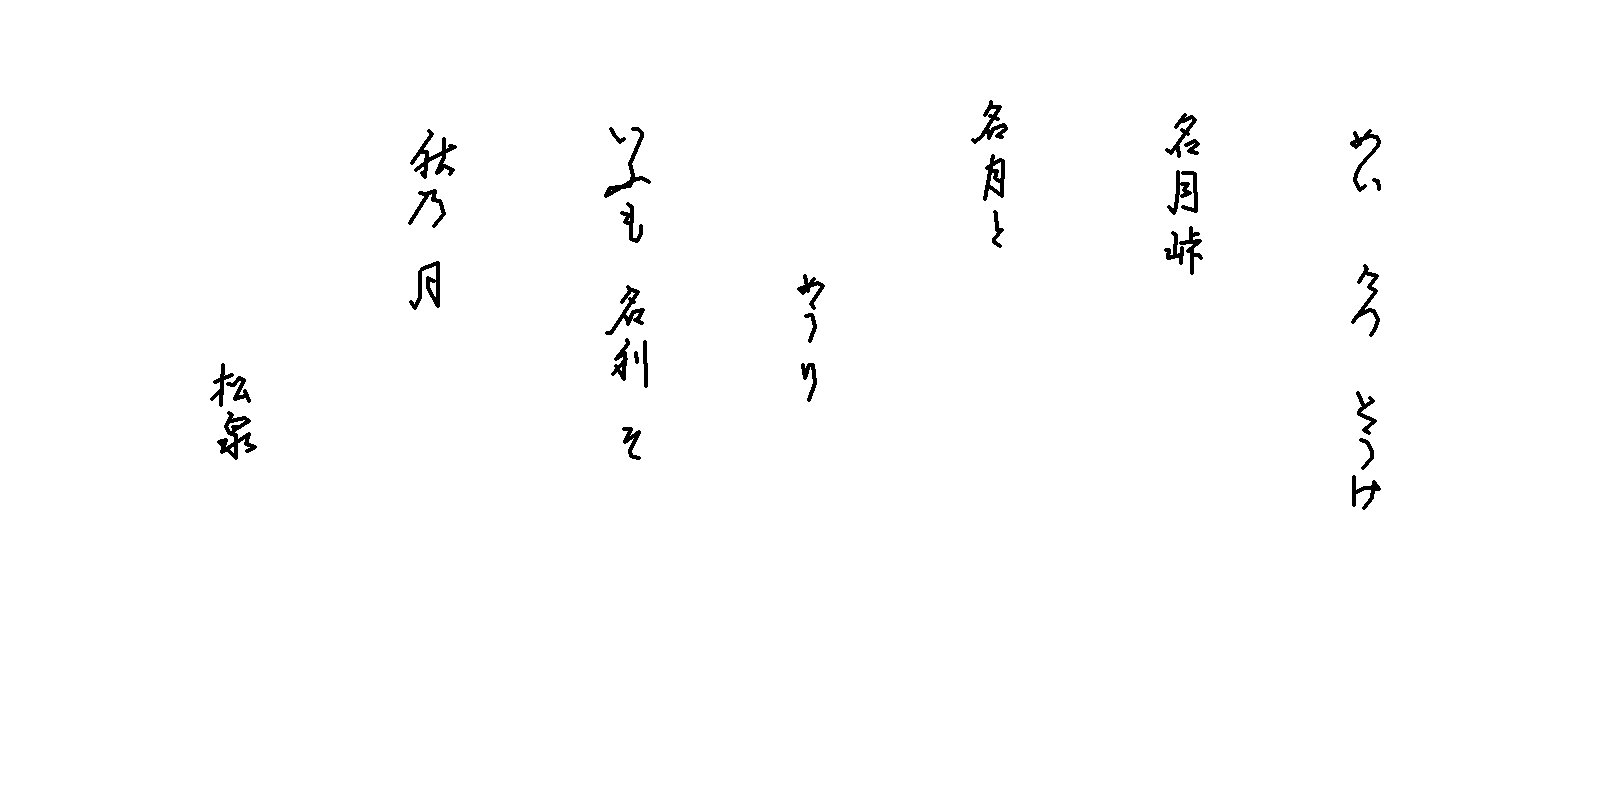 めい げつ とうけ
名月峠
名月と
めうり
いふも 名利 そ
秋乃 月
松泉